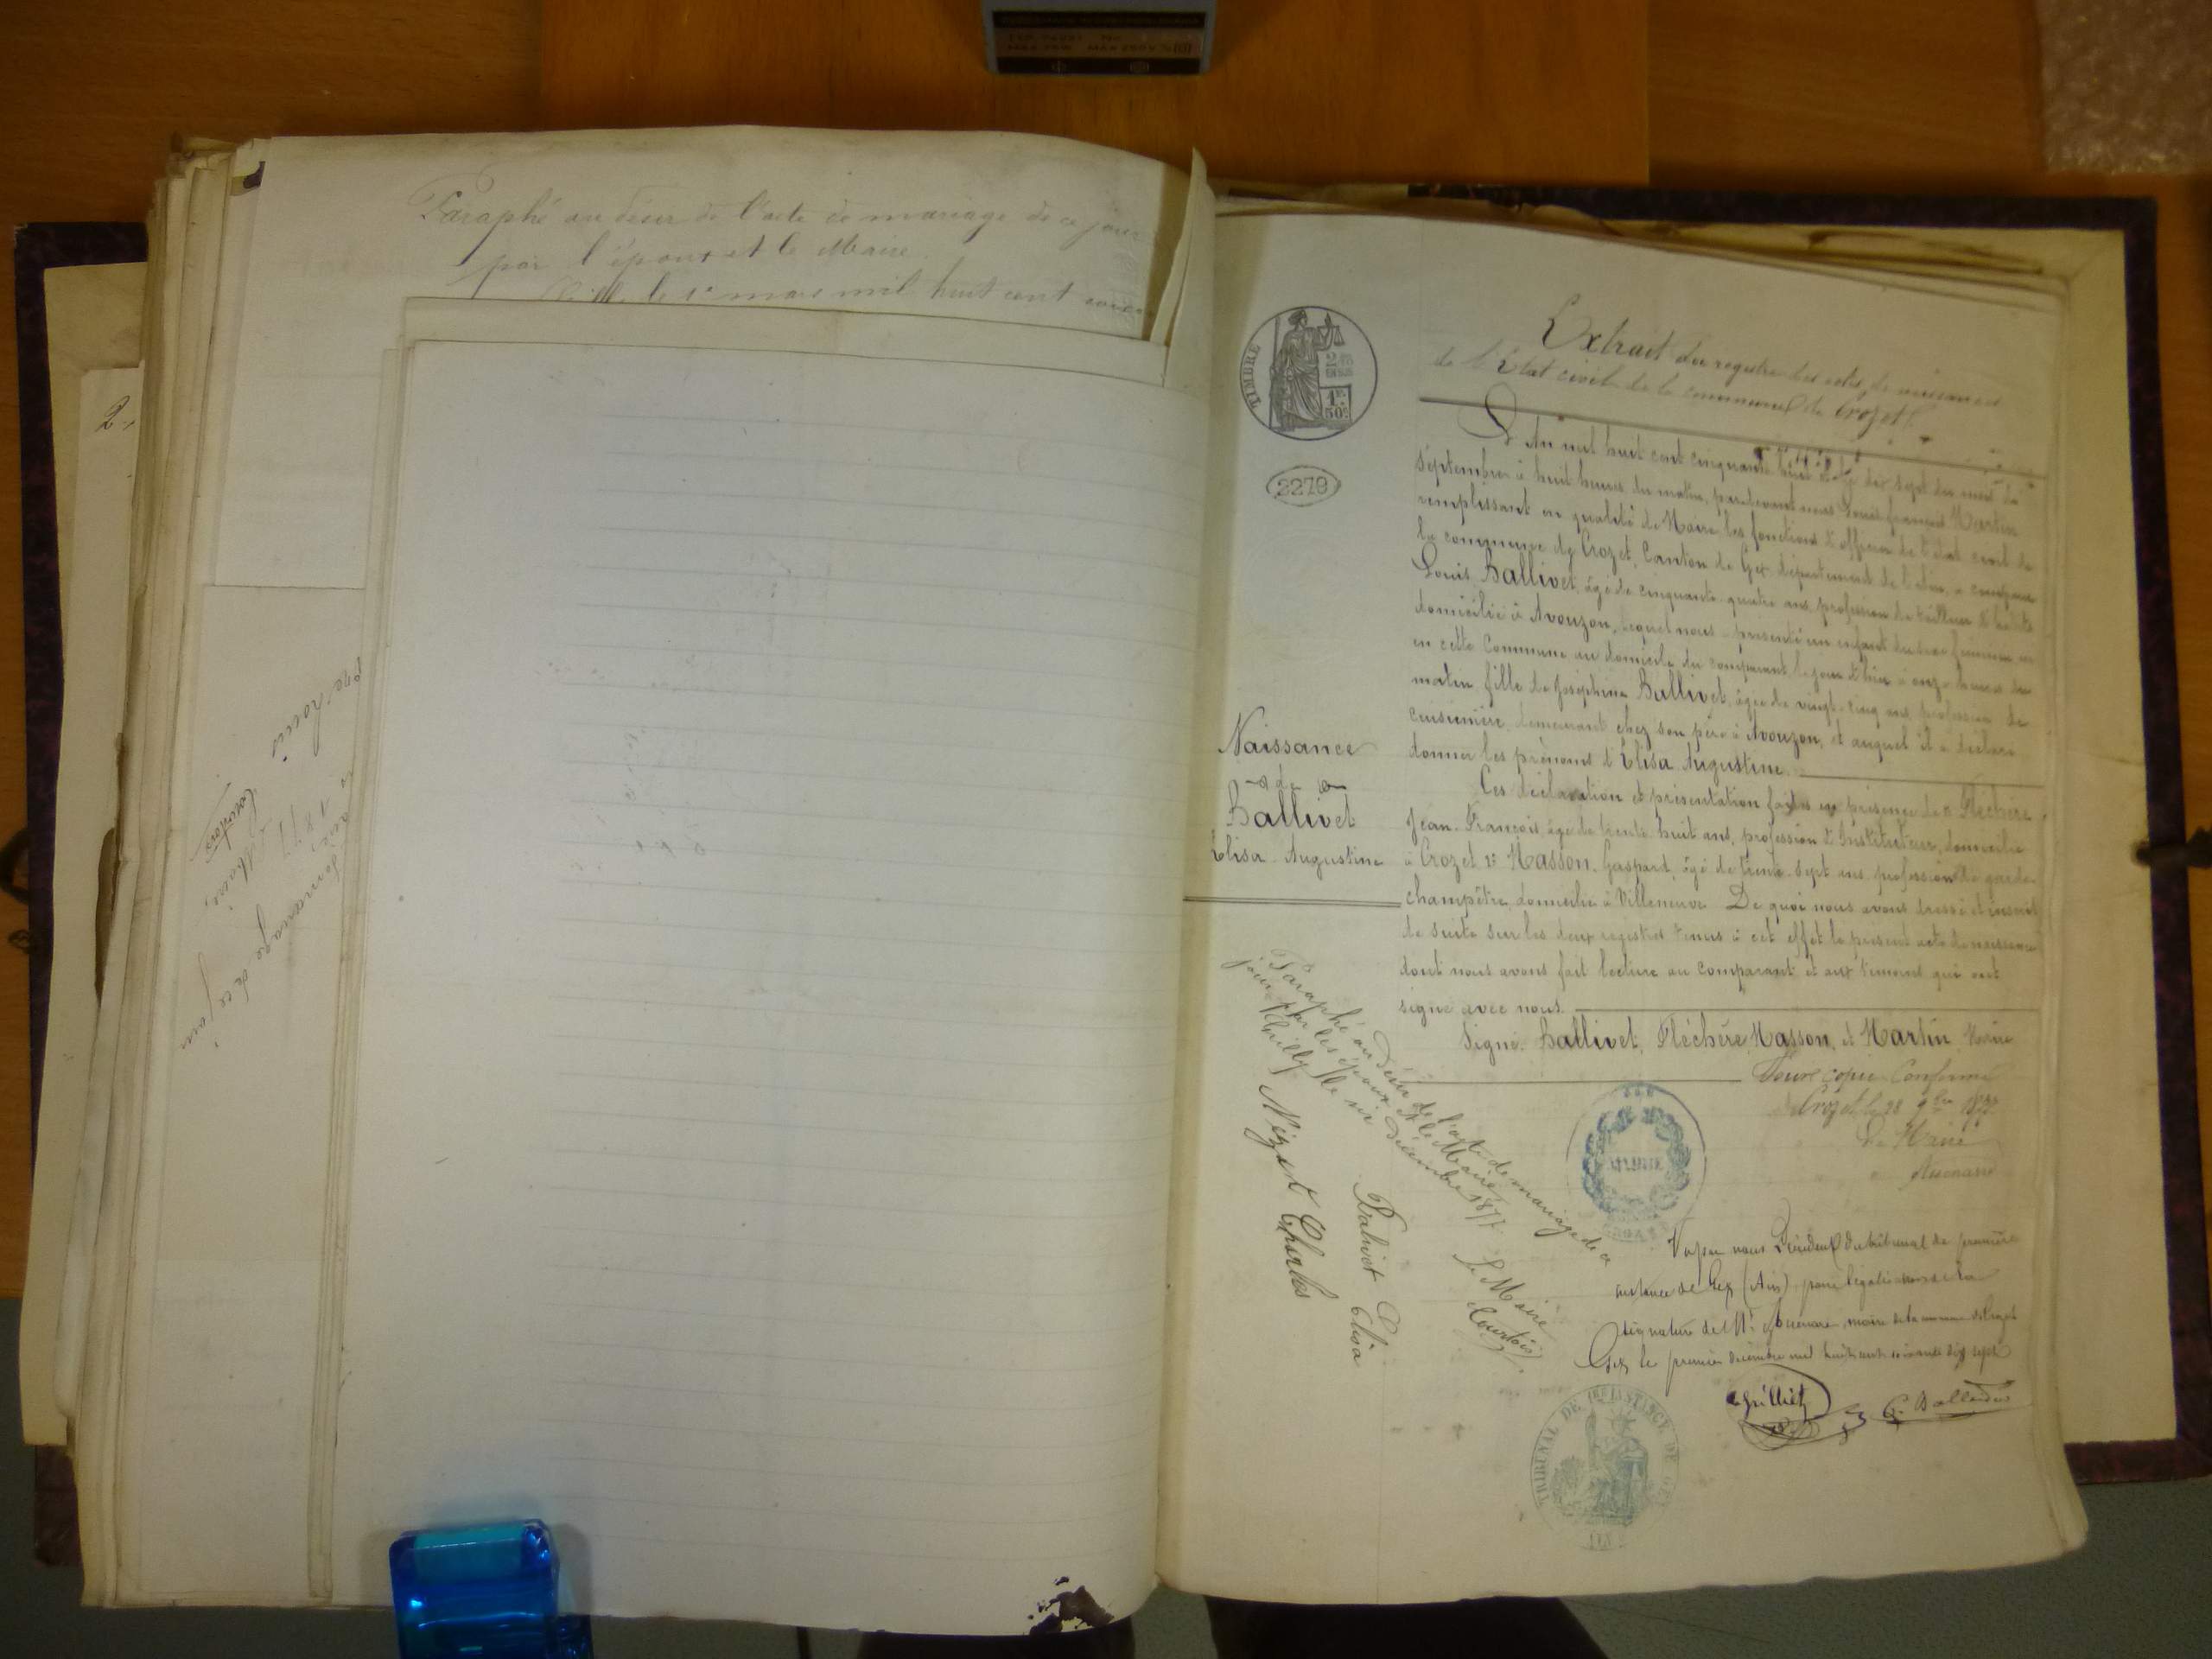 Paraphé au désir de l'acte de mariage de ce jour
par l'époux et le Maire.
le 1er mars mil huit cent
2
de mariage de ce jour
1877
Le Maire,
Courtois
TIMBRE
2/10
EN SUS
1F.
50C.
2279
Extrait du registre des actes de naissances
de l'Etat civil de la commune de Crozet.
L'An mil huit cent cinquante huit et le dix sept du mois de
Septembre à huit heures du matin, pardevant nous Louis François Martin
remplissant en qualité de Maire les fonctions d'officier de l'état civil de
la commune de Crozet, Canton de Gex, département de l'Ain, a comparu
Louis Ballivet, âgé de cinquante-quatre ans, profession de tailleur d'habits
domicilié à Avouzon, lequel nous a présenté un enfant du sexe féminin né
en cette Commune au domicile du comparant le jour d'hier à onze heures du
matin, fille de Joséphine Ballivet, âgée de vingt-cinq ans, profession de
cuisinière, demeurant chez son père à Avouzon, et auquel il a déclaré
donner les prénoms d'Elisa Augustine.
Ces déclaration et présentation faites en présence de 1° Fléchère
Jean-François, âgé de trente huit ans, profession d'Instituteur, domicilié
à Crozet 2° Masson Gaspard, âgé de trente-sept ans, profession de garde
champêtre, domicilié à Villeneuve. De quoi nous avons dressé et inscrit
de suite sur les deux registres tenus à cet effet le présent acte de naissance
dont nous avons fait lecture au comparant et aux témoins qui ont
signé avec nous.
Signé: Ballivet, Fléchère, Masson, et Martin Maire
Pour copie Conforme
Crozet, le 28 9bre 1877
Le Maire
Naissance
de
Ballivet
Elisa Augustine
Paraphé au désir de l'acte de mariage de ce
jour par les époux et le Maire.
le six décembre 1877
Le Maire
Courtois
Nizet Charles
Balivet Elisa
MAIRIE
Vu par nous Président du tribunal de première
instance de Gex (Ain), pour légalisation de la
signature de Mr maire de la commune de Crozet
Gex le premier décembre mil huit cent soixante dix sept
TRIBUNAL DE 1ERE INSTANCE DE GEX